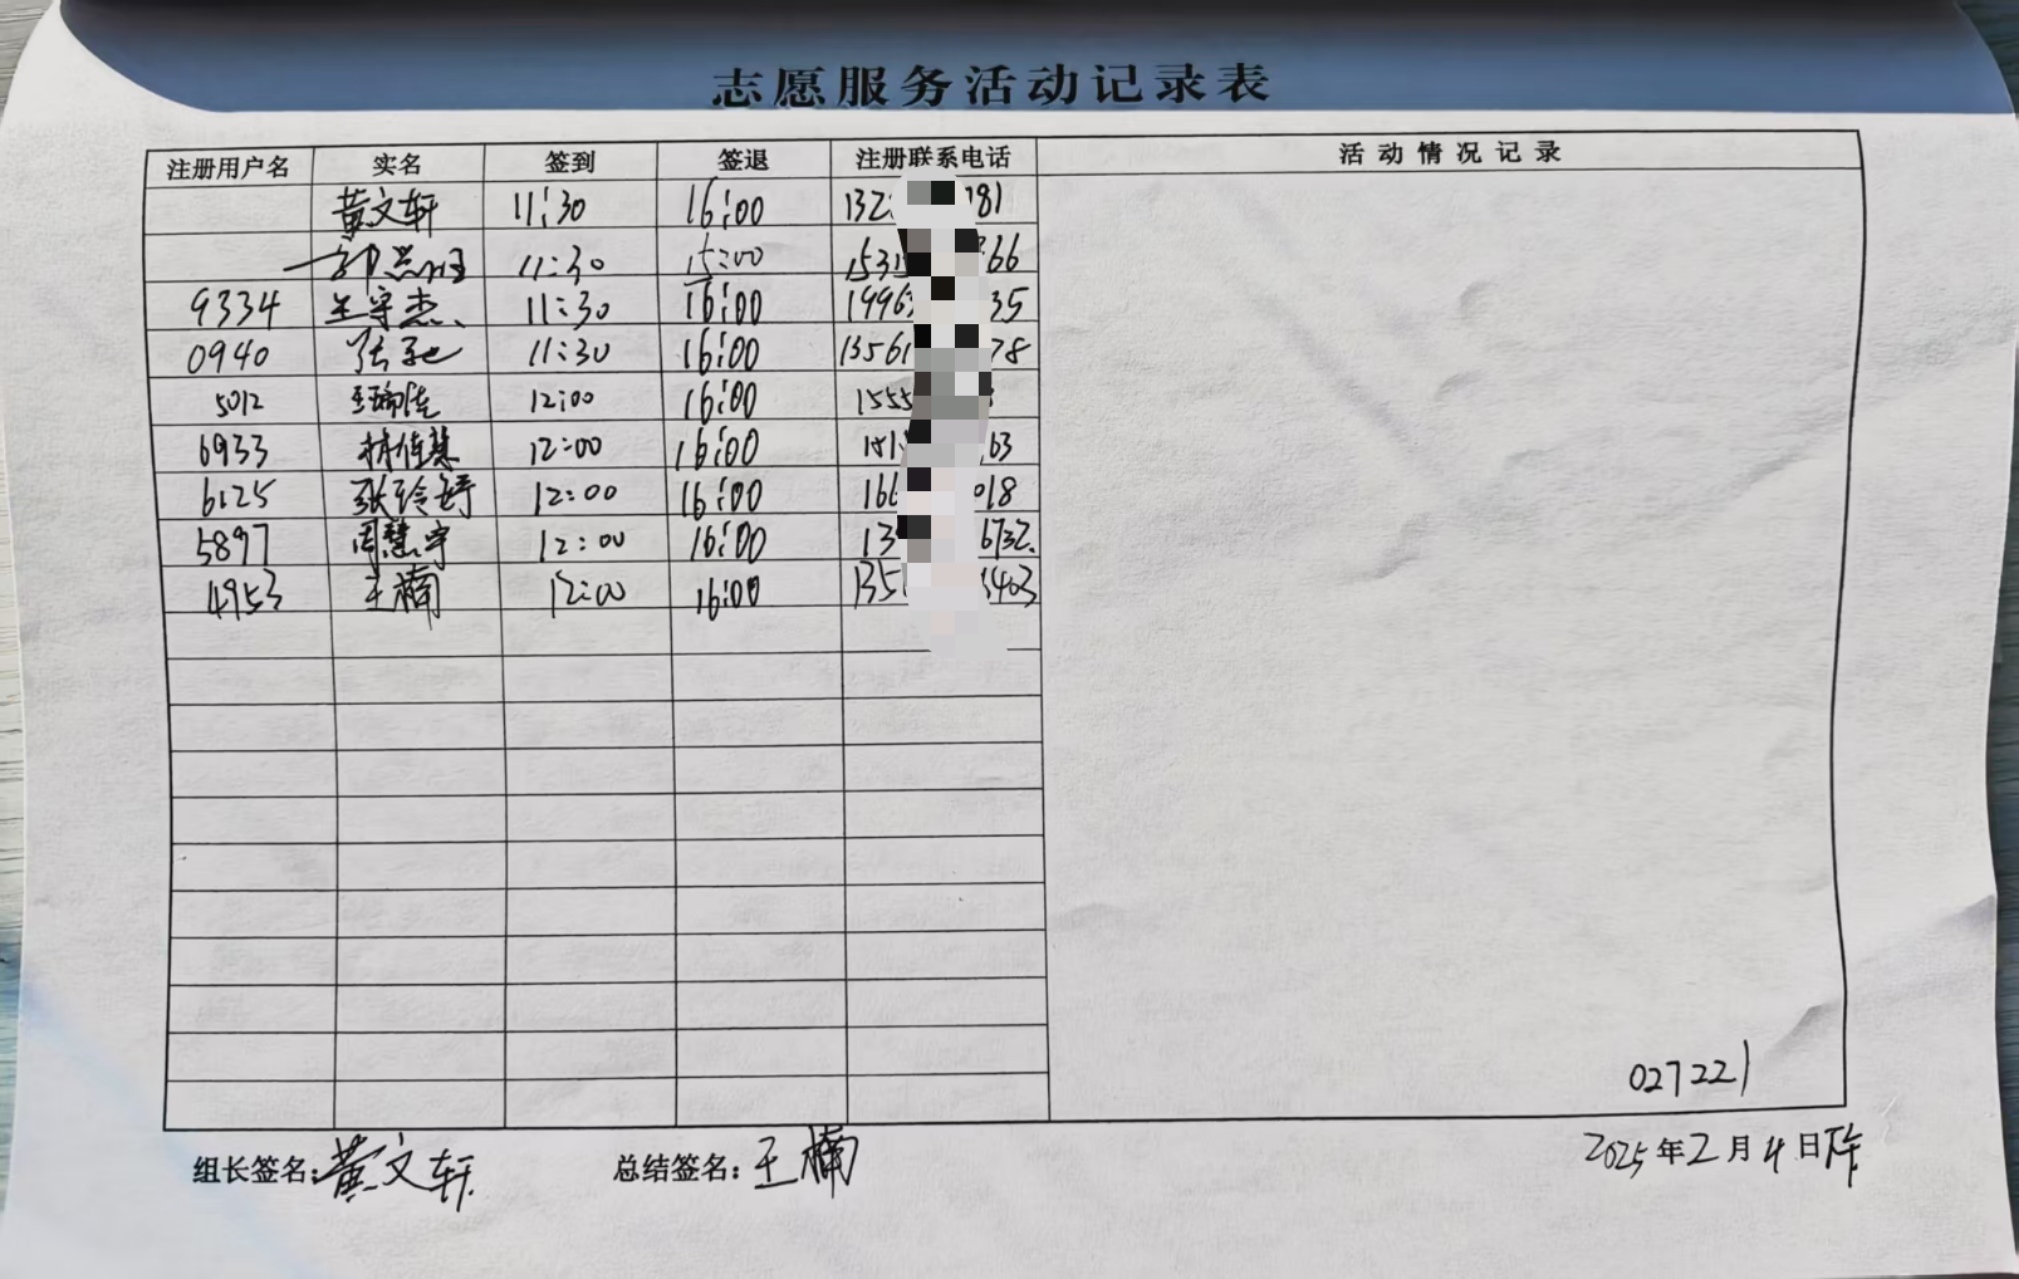 志愿服务活动记录表
注册用户名 实名 签到 签退 注册联系电话 活动情况记录
黄文轩 11:30 16:00 132 781
11:30 15:00 1531 66
9334 王宇杰 11:30 16:00 1996 35
0940 张驰 11:30 16:00 13561 78
5012 12:00 16:00 1555
6933 林佳慧 12:00 16:00 181 63
6125 张玲婷 12:00 16:00 166 018
5897 周慧宇 12:00 16:00 13 6732
4953 王楠 12:00 16:00 135 3403
027221
组长签名:黄文轩 总结签名:王楠 2025年2月4日